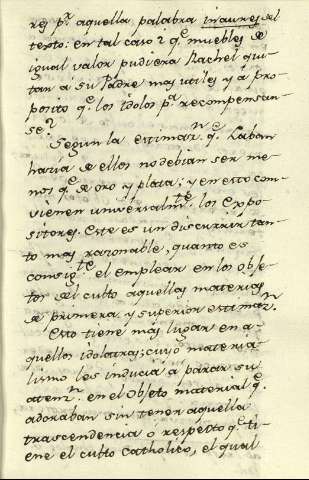 res p.ª aquella palabra inaures del
texto: en tal caso ¿ q.e muebles de
igual valor pudiera Rachel qui-
tar á su Padre mas utiles y a pro-
posito q.e los idolos p.ª recompensar-
se?
Segun la estimaz.n q.e Laban
haria de ellos no debian ser me-
nos q.e de oro y plata; y en esto com-
vienen universalm.te los Expo-
sitores. Este es un discurrir tan-
to mas razonable, quanto es
consig.te el emplear en los Obje-
tos del culto aquellas materias
de primera y superior estimaz.n
Esto tiene mas lugar en a-
quellos idolatras, cuyo materia-
lismo les inducia á parar su
atenz.n en el Objeto material q.e
adoraban sin tener aquella
trascendencia ó respeto q.e ti-
ene el culto Catholico, el qual